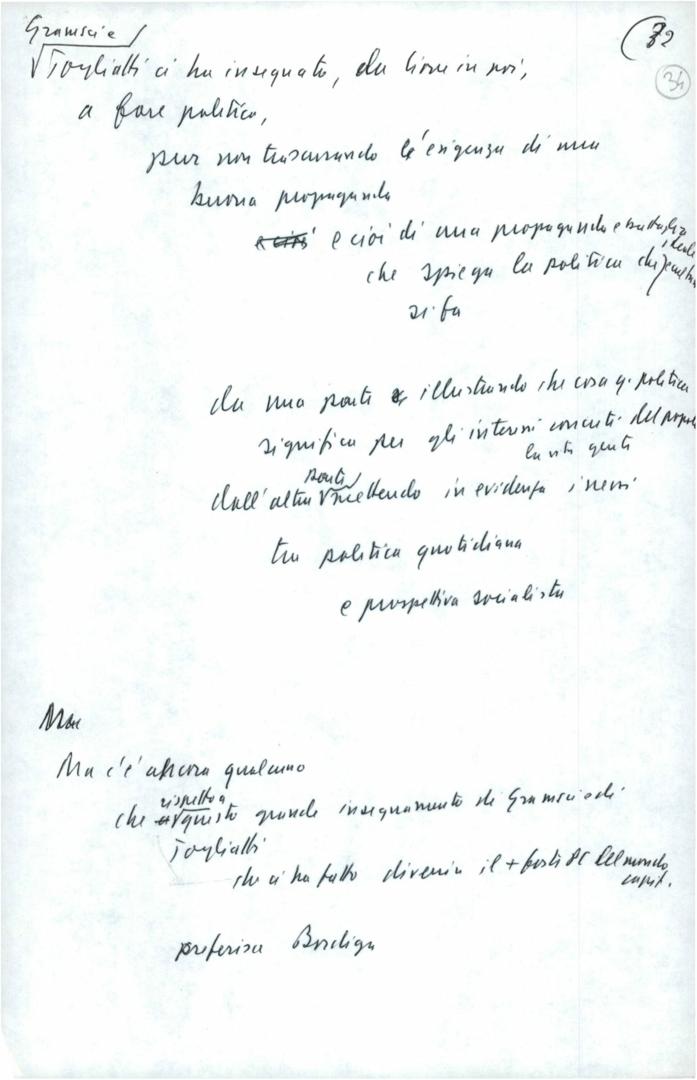 32
34
Gramsci e
Togliatti ci ha insegnato, da
a fare politica,
pur non trascurando l'esigenza di una
buona propaganda
e cioè e cioè di una propaganda e battaglia ideale
che spiega la politica che
si fa
da una parte illustrando che cosa q. politica
significa per gli interessi concreti del popolo
la vita gente
parte
dall'altra mettendo in evidenza i nessi
tra politica quotidiana
e prospettiva socialista
Ma
Ma c'è ancora qualcuno
rispetto a
che questo grande insegnamento di Gramsci e di
Togliatti
che ci ha fatto divenire il + forte PC del mondo
capit.
preferisce Bordiga